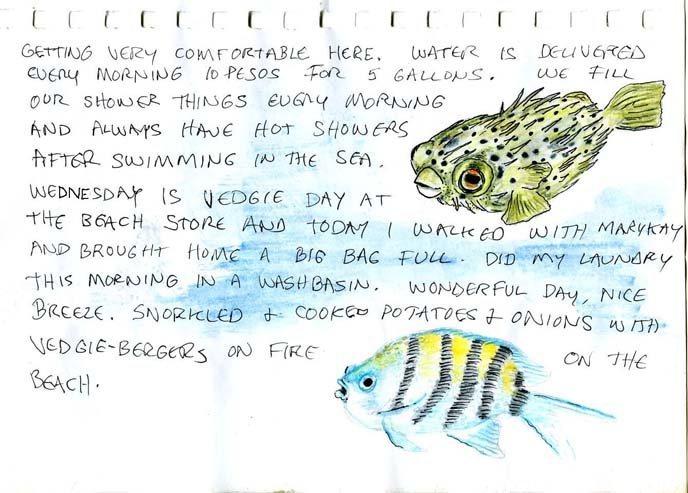 GETTING VERY COMFORTABLE HERE. WATER IS DELIVERED
EVERY MORNING 10 PESOS FOR 5 GALLONS. WE FILL
OUR SHOWER THINGS EVERY MORNING
AND ALWAYS HAVE HOT SHOWERS
AFTER SWIMMING IN THE SEA.
WEDNESDAY IS VEDGIE DAY AT
THE BEACH STORE AND TODAY I WALKED WITH MARYKAY
AND BROUGHT HOME A BIG BAG FULL. DID MY LAUNDRY
THIS MORNING IN A WASHBASIN. WONDERFUL DAY, NICE
BREEZE. SNORKLED & COOKED POTATOES & ONIONS WITH
VEDGIE-BERGERS ON FIRE ON THE
BEACH.